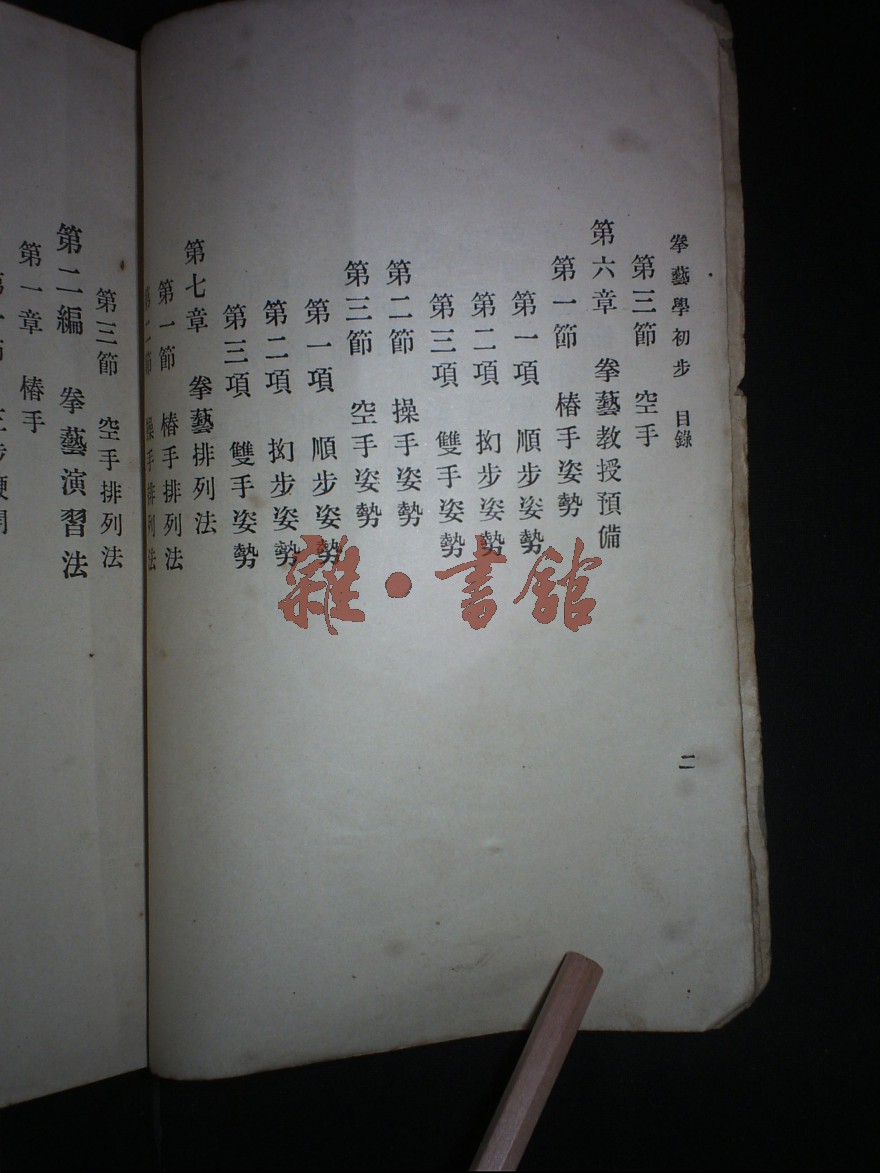 拳藝學初步 目錄
第三節 空手
第六章 拳藝教授預備
第一節 樁手姿勢
第一項 順步姿勢
第二項 抝步姿勢
第三項 雙手姿勢
第二節 操手姿勢
第三節 空手姿勢
第一項 順步姿勢
第二項 抝步姿勢
第三項 雙手姿勢
第七章 拳藝排列法
第一節 樁手排列法
第二節 操手排列法
二
第三節 空手排列法
第二編 拳藝演習法
第一章 樁手
雜·書館